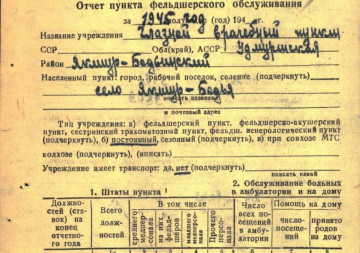 Отчет пункта фельдшерского обслуживания
за 1945 год (год) 194 г.
Название учреждения Глазной врачебный пункт
ССР Об(край), АССР Удмуртская
Район Якшур-Бодьинский
Населенный пункт: город, рабочий поселок, селение (подчеркнуть)
село Якшур-Бодья
вписать название
и почтовый адрес
Тип учреждения: а) фельдшерский пункт, фельдшерско-акушерский
пункт, сестринский трахоматозный пункт, фельдш. венерологический пункт
(подчеркнуть), б) постоянный, сезонный (подчеркнуть), в) при совхозе МТС
колхозе (подчеркнуть), (вписать)
вписать какой
Учреждение имеет транспорт: да, нет (подчеркнуть)
1. Штаты пункта
2. Обслуживание больных в амбулатории и на дому
Должностей (ставок) на конец отчетного года
Всего должностей
В том числе
среднего медперсонала
из них, фельдшеров
младшего медперсонала
Прочего персонала
Число всех посещений в амбулатории
Помощь на дому
число посещений
принято родов на дому